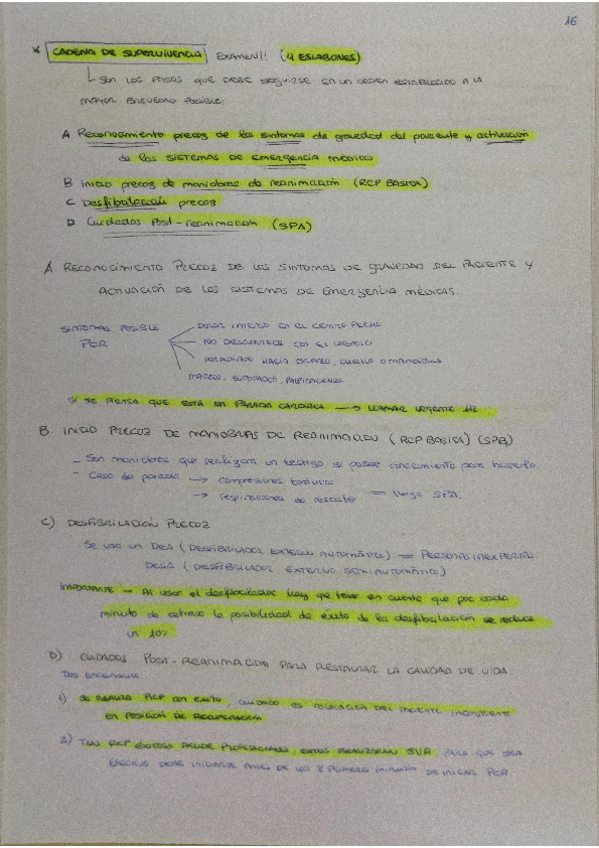 16
* CADENA DE SUPERVIVENCIA EXAMEN!! (4 ESLABONES)
Son los pasos que debe seguirse en un orden establecido a la
mayor brevedad posible.
A Reconocimiento precoz de los sintomas de gravedad del paciente y activación
de los SISTEMAS DE EMERGENCIA MÉDICO
B Inicio precoz de maniobras de reanimación (RCP BASICA)
C Desfibrilación precoz
D Cuidados Post-reanimación (SPA)
A RECONOCIMIENTO PRECOZ DE LOS SINTOMAS DE GRAVEDAD DEL PACIENTE Y
ACTIVACIÓN DE LOS SISTEMAS DE EMERGENCIA MÉDICAS.
SINTOMAS POSIBLE
PCR
DOLOR INTENSO EN EL CENTRO PECHO
NO DESAPARECE CON EL
IRRADIARSE HACIA BRAZO, CUELLO O MANDIBULA
MAREOS, SUDORACIÓN, PALPITACIONES
SI SE PIENSA QUE ESTÁ EN PARADA CARDIACA → LLAMAR URGENTE 112
B. INICIO PRECOZ DE MANIOBRAS DE REANIMACIÓN (RCP BASICA) (SPB)
- Son maniobras que realizará un testigo si posee conocimiento para hacerlo
- Caso de parada → compresiones torácicas
→ respiraciones de rescate =
C) DESFIBRILACIÓN PRECOZ
Se usa un DEA (DESFIBRILADOR EXTERNO AUTOMÁTICO) = PERSONAS INEXPERTAS
DESA (DESFIBRILADOR EXTERNO SEMIAUTOMÁTICO)
IMPORTANTE → Al usar el desfibrilador hay que tener en cuenta que por cada
minuto de retraso la posibilidad de éxito de la desfibrilación se reduce
un 10%
D) CUIDADOS POST-REANIMACIÓN PARA RESTAURAR LA CALIDAD DE VIDA
1) SE REALIZA RCP CON EXITO, CUIDADO ES COLOCACIÓN DEL PACIENTE INCONSCIENTE
EN POSICIÓN DE RECUPERACIÓN
2) TRAS RCP EXITOSO ACUDE PROFESIONALES, ESTOS REALIZARAN SVA, PARA QUE SEA
EFECTIVO DEBE INICIARSE ANTES DE LOS 8 PRIMEROS MINUTOS DE INICIAR PCR